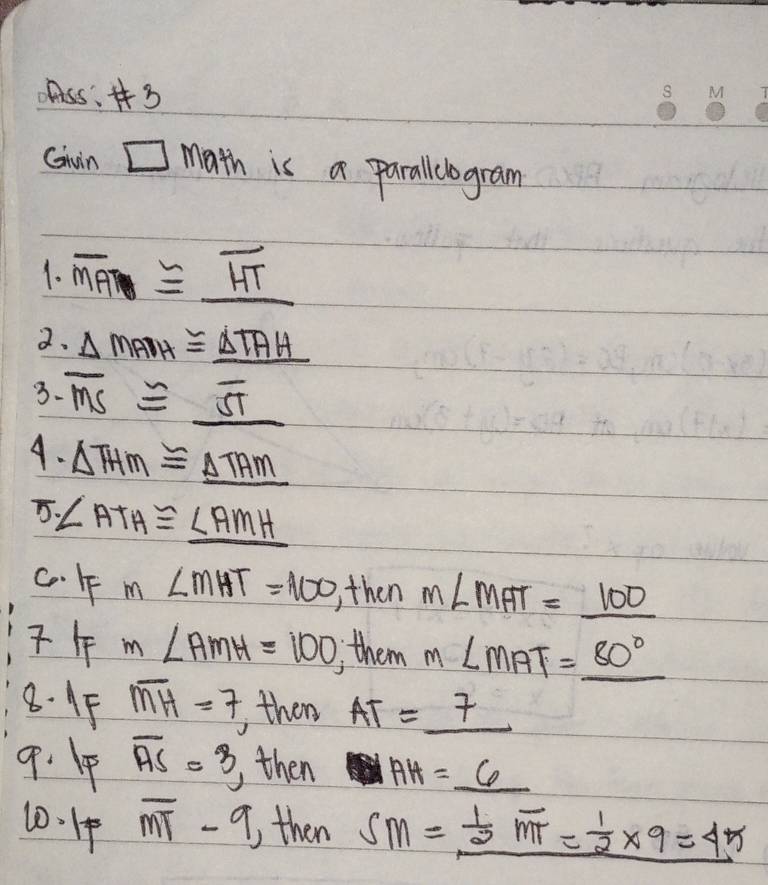 Ass: #3
S M T
Givin □ Math is a parallelogram
1. M̅A̅ ≅ H̅T̅
2. Δ MAH ≅ ΔTAH
3- M̅S̅ ≅ S̅T̅
4. ΔTHM ≅ ΔTAM
5. ∠ATA ≅ ∠AMH
6. IF m ∠MHT = 100, then m∠MAT = 100
7 IF m ∠AMH = 100, them m ∠MAT = 80°
8. IF M̅H̅ = 7, then AT = 7
9. IF A̅S̅ = 3, then AH = 6
10. IF M̅T̅ - 9, then SM = 1/2 M̅T̅ = 1/2 × 9 = 45